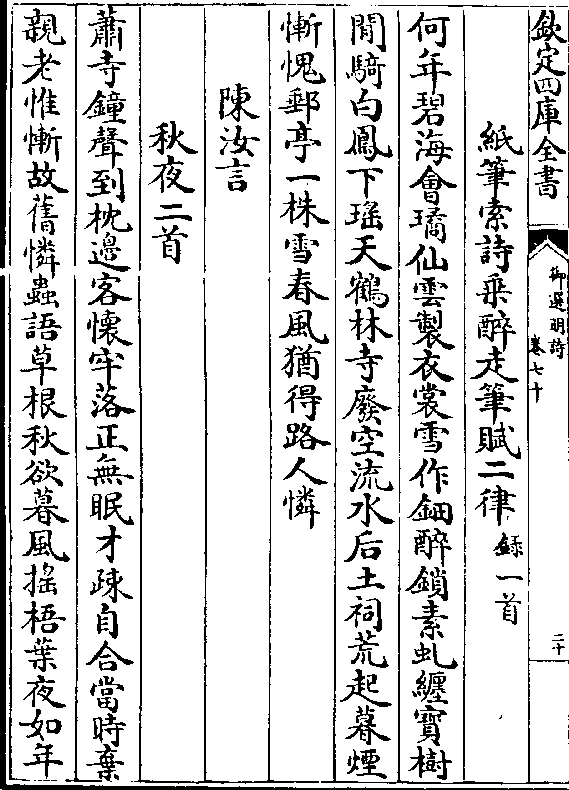 欽定四庫全書
御選明詩
卷七十
二十
紙筆索詩乗醉走筆賦二律錄一首
何年碧海會璚仙雲製衣裳雪作鈿醉鎖素虬纏寳樹
閒騎白鳳下瑤天鶴林寺廢空流水后土祠荒起暮煙
慚愧郵亭一株雪春風猶得路人憐
陳汝言
秋夜二首
蕭寺鐘聲到枕邊客懷牢落正無眠才疎自合當時棄
親老惟慚故舊憐蟲語草根秋欲暮風搖梧葉夜如年